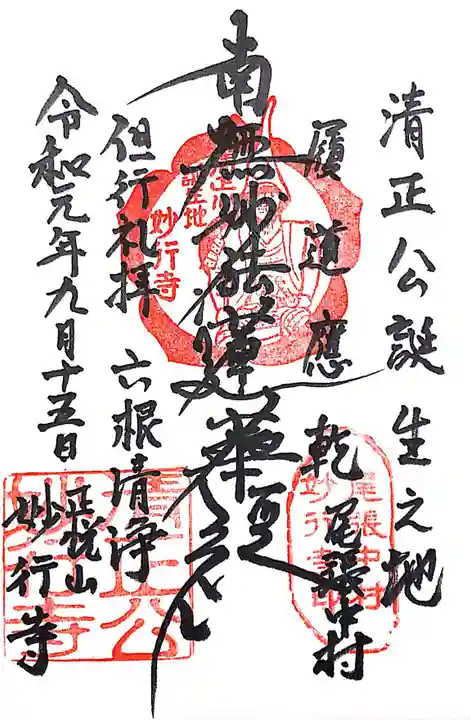 清正公誕生之地
履道應乾
尾張中村
南無妙法蓮華経
但行礼拝 六根清浄
令和元年九月十五日
正悦山
妙行寺
誕生地
妙行寺
尾張中村
妙行寺
清正公